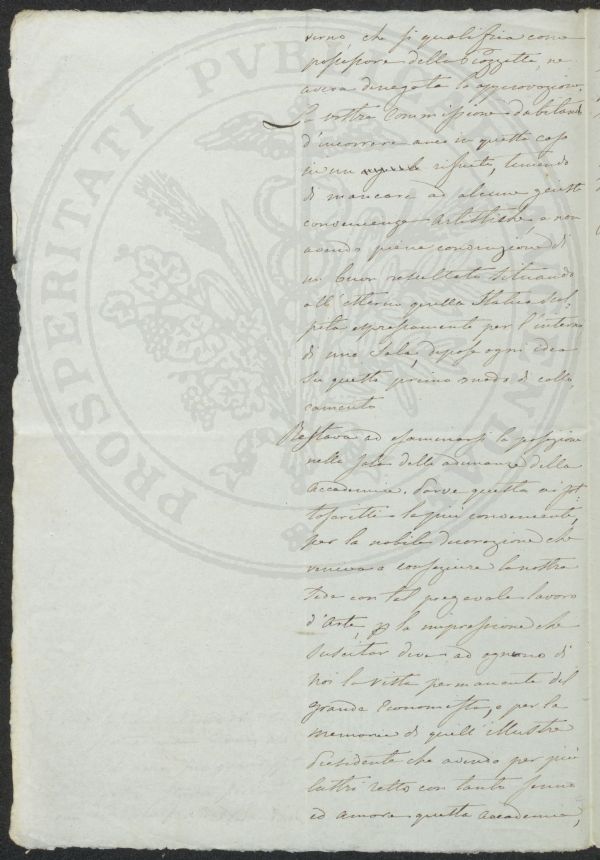 verno che si qualifica come
possessore della Piazzetta, ne
aveva denegata l'approvazione.
La vostra Commissione dubitando
d'incorrere anco in questo caso
in un rifiuto, temendo
di mancare ad alcune giuste
convenienze Artistiche, e non
avendo piena convinzione di
un buon resultato situando
all'esterno quella Statua scol
pita espressamente per l'interno
di una Sala, depose ogni idea
su questo primo modo di collo
camento.
Restava ad esaminarsi la posizione
nella sala delle adunanze della
Accademia. Parve questa ai
la più conveniente,
per la nobile decorazione che
veniva a conseguire la nostra
Sede con tal pregevole lavoro
d'Arte, p la impressione che
suscitar deve ad ognuno di
noi la vista permanente del
grande Economista, e per la
memoria di quell'illustre
Presidente che avendo per più
lustri retto con tanto senno
ed amore questa Accademia,
PROSPERITATI PUBLICAE AUGENDAE